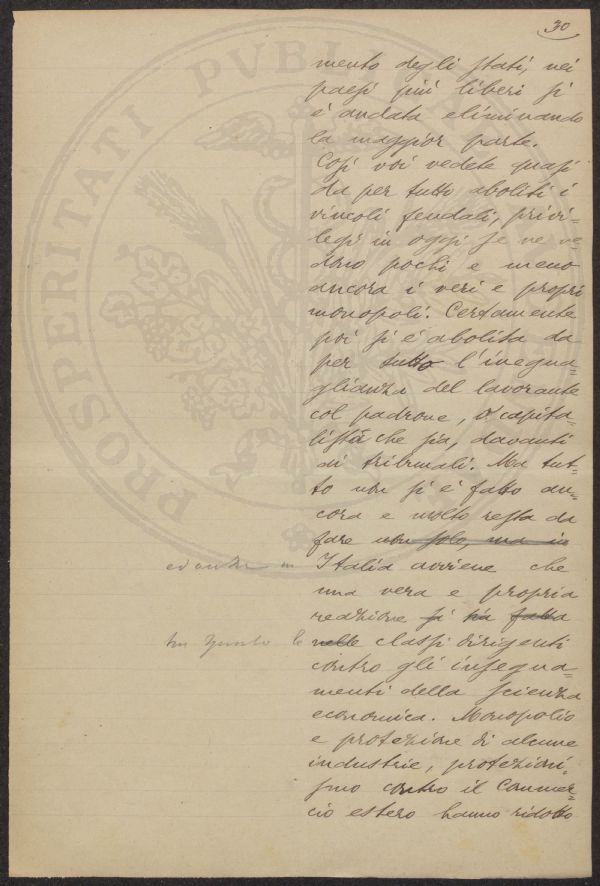 30
mento degli stati, nei
paesi più liberi si
è andata eliminando
la maggior parte.
Così voi vedete quasi
da per tutto aboliti i
vincoli feudali, privi=
legi in oggi se ne ve=
dono pochi e meno
ancora i veri e propri
monopoli. Certamente
poi si è abolita da
per tutto l'inegua=
glianza del lavorante
col padrone, o capita=
lista che sia, davanti
ai tribunali. Ma tut=
to non si è fatto an=
cora e molto resta da
fare non solo, ma in
ed anche in Italia avviene che
una vera e propria
reazione si fatta
le nelle classi dirigenti
contro gli insegna=
menti della scienza
economica. Monopolio
e protezione di alcune
industrie, protezioni=
smo contro il Commer=
cio estero hanno ridotto
PROSPERITATI PVBLICAE